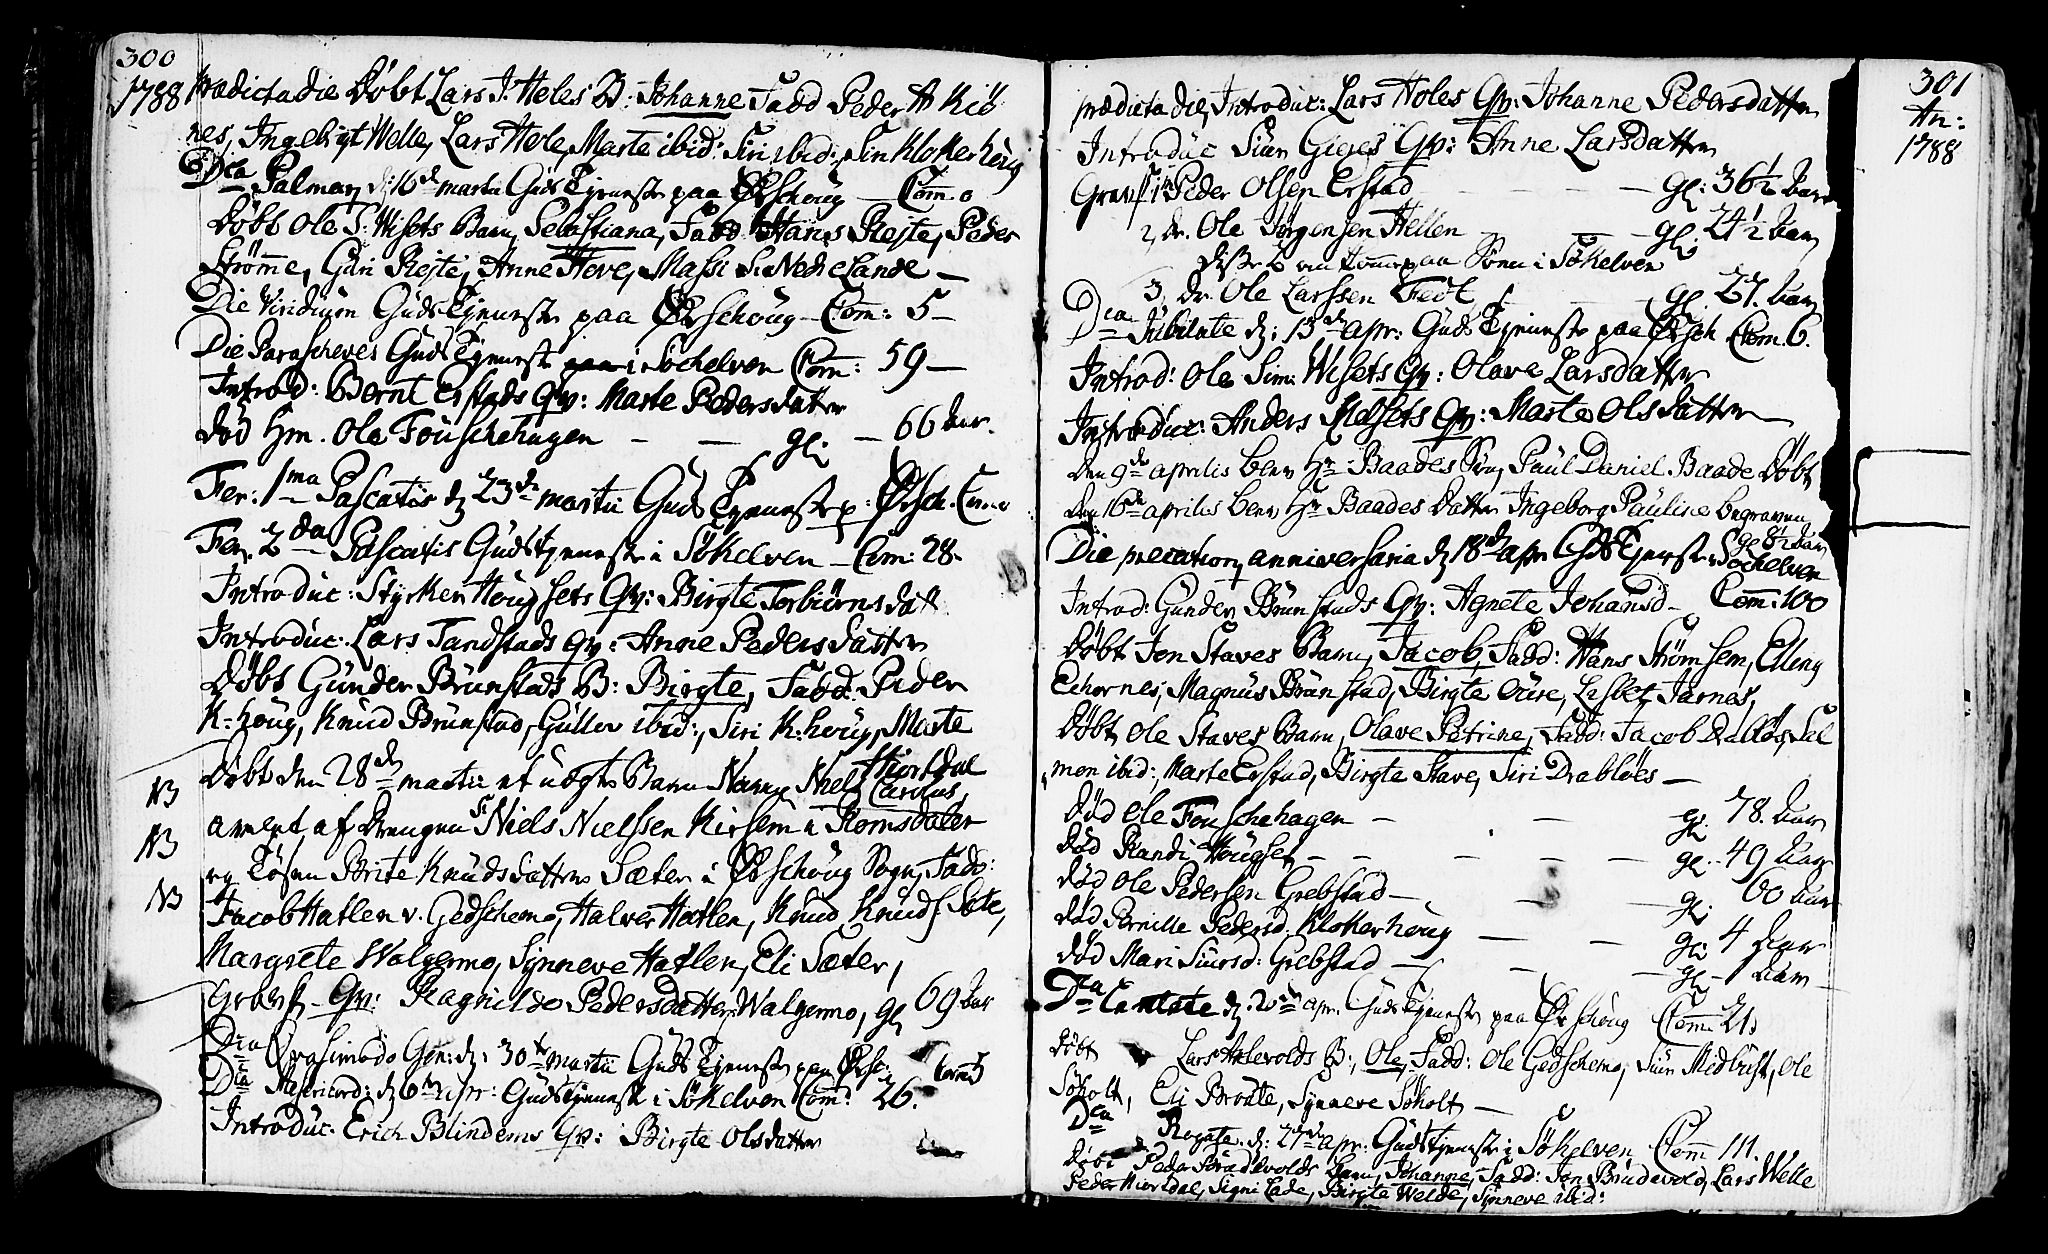 300
1788
prædicta die Døbt Lars J. Holes B: Johanne Fadd Peder A Kiø
nes, Ingebrigt Welle, Lars Hole, Marte ibid: Siri ibid:, Siri Klokerhoug
Dca Palmar d: 16de martii Guds Tjeneste paa Ørschoug – Com. 0
Døbt Ole S. Wisets Barn, Sebastiana, Fadd Hans Rejte, Peder
Strømme, Guri Rejte, Anne Hove, Massi Nedre Lande –
Die Viridium Guds Tjeneste paa Ørschoug – Com: 5 –
Die Parasceves Guds Tjeneste i Søchelven Com: 59 –
Introd: Bernt Erstads Qv: Marte Pedersdatter
død Hm. Ole Fouschehagen – – gl: – 66 Aar.
Fer: 1ma Pascatis d 23de martii Guds Tjeneste p: Ørsch. Com: 0
Fer. 2da Pascatis Guds Tjeneste i Søkelven – Com: 28.
Introduc: Styrker Hougsets Qv: Birgte Torbiørnsdatt
Introduc: Lars Tandstads Qv: Anne Pedersdatter
Døbt Gunder Brunstads B: Birgte, Fadd: Peder
K:houg, Knud Brunstad, Gullov ibid:, Siri K:houg, Marte
Hiortdal
NB Døbt den 28de martii et uægte Barn Navn Niels Carolus,
NB avlet af Drengen Sr Niels Nielssen Kirsem i Romsdalen
og Tøsen Brite Knudsdatter Sæter i Ørschoug Sogn, Fadd:
NB Jacob Hatlen v. Gedschemo, Halver Hatlen, Knud Knuds Sæte,
Margrete Walgermo, Synneve Hatlen, Eli Sæter,
Gravf. Qv: Ragnilde Pedersdatter Walgermo, gl 69 Aar
Dca Qvasimodo Gen: d: 30te martii Guds Tjeneste paa Ørsc:
Dca Misericord: d 6te apr: Guds Tjeneste i Søkelven Com: 26.
Introduc: Erich Blindems Qv: Birgte Olsdatter
301
An:
1788
prædicta die, Introduc: Lars Holes Qv: Johanne Pedersdatter
Introduc Siur Gieges Qv: Anne Larsdatter
Gravf. 1, Peder Olsen Erstad – – gl: 36½ Aar
2, dr. Ole Jørgensen Hellen – – gl: 24½ Aar
disse 2 omkomne paa Søen i Søkelven
3, dr. Ole Larssen Fedt – gl: 27. Aar
Dca Jubilate d: 13de apr: Guds Tjeneste paa Ørsch Com. 6.
Introd: Ole Sim: Wisets Qv: Olave Larsdatter
Introduc: Anders Mosets Qv: Marte Olsdatter
den 9de aprilis blev Hr Baades Søn, Paul Daniel Baade Døbt
den 16de aprilis blev Hr Baades datter Ingeborg Pauline begraven
gl 8½ Aar
Die precation, anniversaria d 18de apr Guds Tjeneste i Søchelven
Introd: Gunder Brunstads Qv: Agnete Johansd – Com: 100
Døbt Jon Staves Barn, Jacob, Fadd: Hans Strømsem, Elling
Echornes, Magnus Brunstad, Birgte Oure, Lesbet Jarnes,
Døbt Ole Staves Barn, Olave Petrine, Fadd: Jacob Drabløs, Sal
mon ibid:, Marte Erstad, Birgte Stave, Siri Drabløes –
død Ole Fouschehagen – – gl: 78. Aar
død Randi Hougset – – gl: 49 Aar
død Ole Pedersen Grebstad – – gl: 60 Aar
død Pernille Pedersd. Klokerhoug – – gl: 4 Aar
død Mari Siursd: Grebstad – – gl – 1 Aar –
Dca Cantate d: 20de apr. Guds Tjeneste paa Ørschoug Com: 21.
Døbt Lars Halevolds B:, Ole, Fadd: Ole Gedschemo, Siur Medbust, Ole
Søholt, Eli Brodte, Synneve Søholt –
Dca Rogate. d: 27de apr: Guds Tjeneste i Søkelven Com 111.
Døbt Peder Søradelvolds Barn, Johanne, Fadd: Jon Brudevold, Lars Welle
Peder Hiortdal, Signi Lade, Birgte Welde, Synneve ibid: